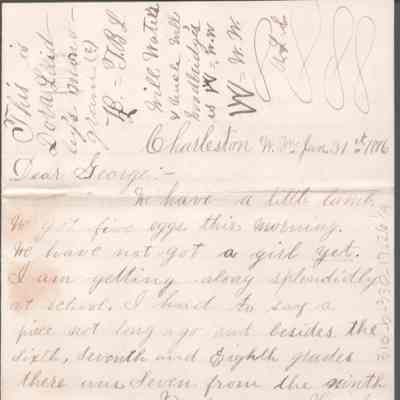 This is
Dora Laid-
ley's mono-
gram (?)
= T.B.L
Will Watts
& Uncle Will
Woodbridge's
is W = W.W
W = W.W.
Charleston W. Va. Jan. 31st
Dear George:-
We have a little lamb.
We got five eggs this morning.
We have not got a girl yet.
I am getting along splendidly
at school. I had to say a
piece not long ago and besides the
sixth, seventh and Eighth grades
there was seven from the ninth